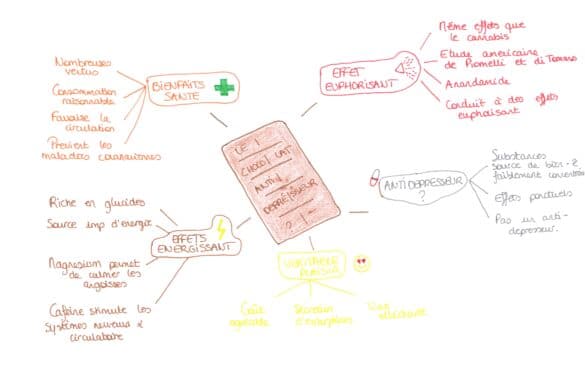 LE
CHOCOLAT
ANTI-
DEPRESSEUR
?
BIENFAITS
SANTE
Nombreuses
vertus
Consommation
raisonnable
Favorise la
circulation
Prévient les
maladies coronariennes
EFFET
EUPHORISANT
Même effets que
le cannabis
Etude américaine
de Piomelli et di Tomaso
Anandamide
Conduit à des effets
euphorisant
ANTIDEPRESSEUR
?
Substances
source de bien-ê
faiblement concentrées
Effets ponctuels
Pas un anti-
depresseur.
EFFETS
ENERGISSANT
Riche en glucides
Source imp d'énergie
Magnésium permet
de calmer les
angoisses
Caféine stimule les
systèmes nerveux &
circulatoire
VERITABLE
PLAISIR
Goût
agréable
Sécrétion
d'endorphines